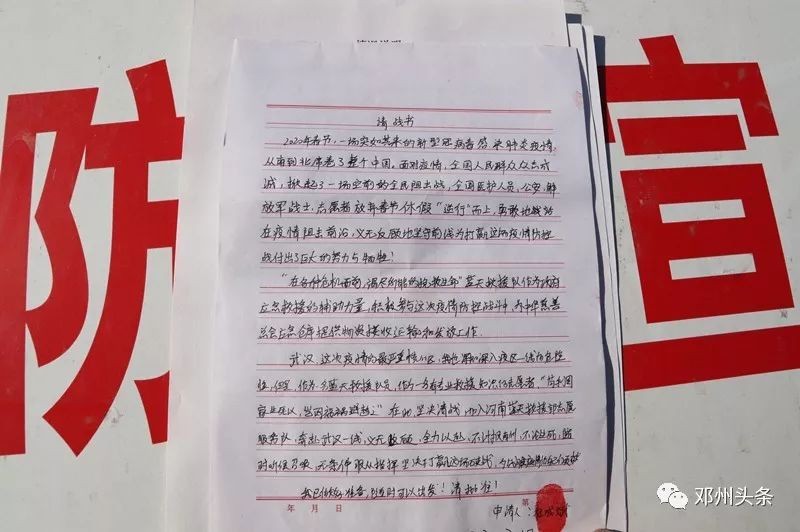 防
宣
请战书
2020年春节,一场突如其来的新型冠状病毒感染肺炎疫情,
从南到北席卷了整个中国。面对疫情,全国人民群众众志成
城,掀起了一场空前的全民阻击战,全国医护人员、公安、解
放军战士、志愿者放弃春节休假“逆行”而上,勇敢地战斗
在疫情阻击前沿,义无反顾地坚守前线为打赢这场疫情防控
战付出了巨大的努力与牺牲!
“在各种危机面前,竭尽所能的挽救生命”蓝天救援队作为政府
应急救援的辅助力量,积极参与这次疫情防控战斗,为中华慈善
总会应急仓库提供物资接收运输和发放工作。
武汉,这次疫情的最严重核心区,
作为蓝天救援队员,作为一名有专业救援知识的志愿者“苟利国
家生死以,岂因祸福避趋之”在此,坚决请战,加入河南蓝天救援
服务队,奔赴武汉一线,义无反顾,全力以赴,不计报酬,不论生死,随
时听候召唤,无条件服从指挥,坚决打赢这场
我已做好准备,随时可以出发!请批准!
年 月 日
第
申请人:
邓州头条